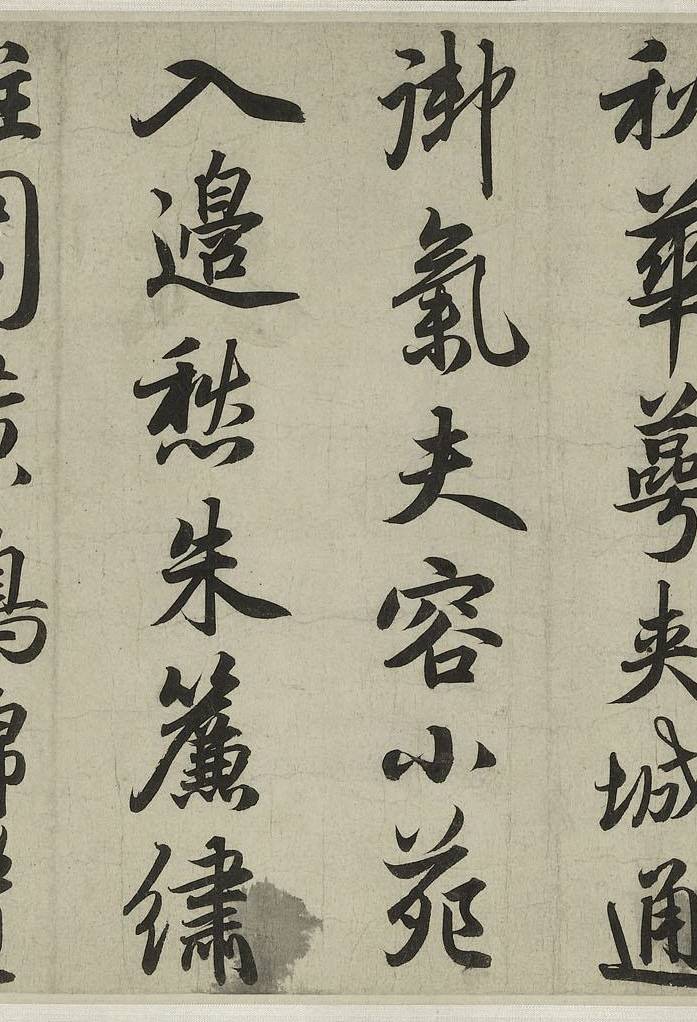 秋華萼夾城通
御氣夫容小苑
入邊愁朱簾繡
柱圍黃鵠錦